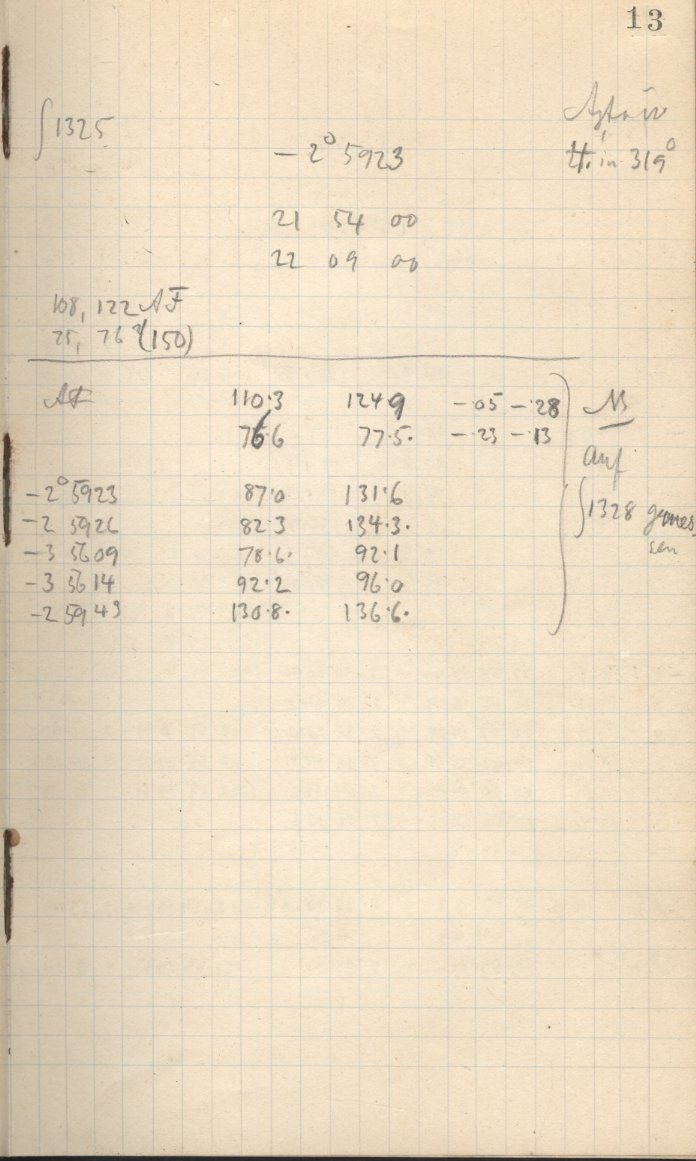 13
∫1325
−2° 5923
in 319°
21 54 00
22 09 00
108, 122 AF
75, 76 (150)
AF 110.3 124.9 −.05 −.28
76.6 77.5. −.23 −.13
NB
auf
∫1328 gemes
sen
−2° 5923 87.0 131.6
−2 5926 82.3 134.3.
−3 5609 78.6. 92.1
−3 5614 92.2 96.0
−2 5943 130.8. 136.6.